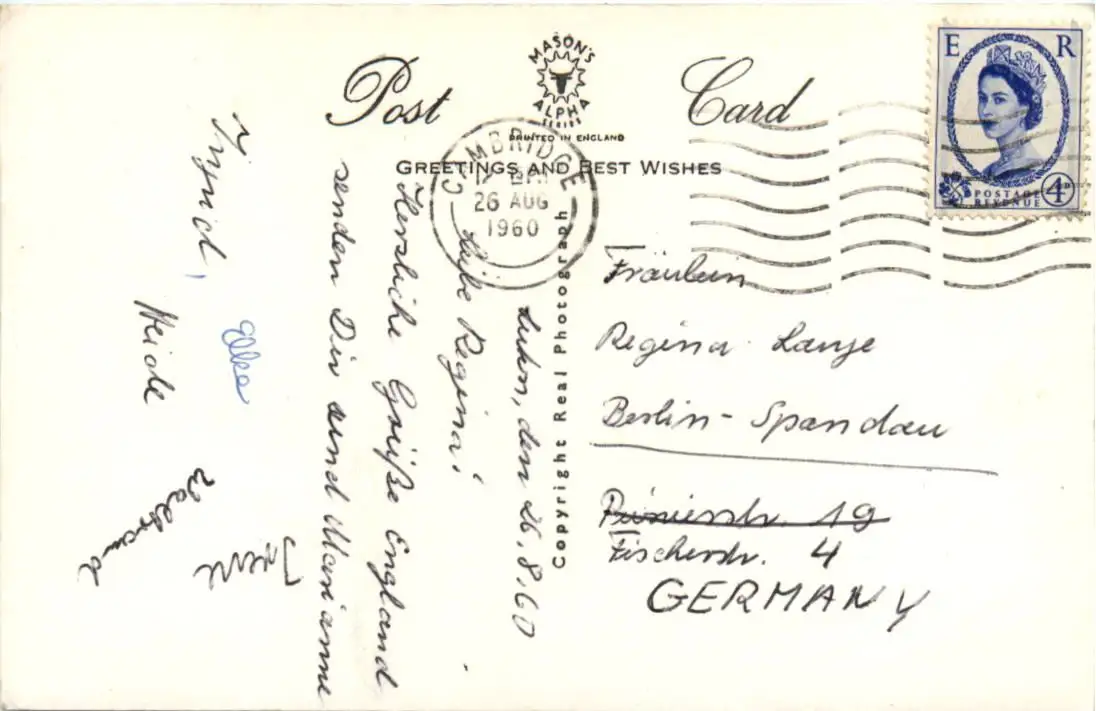 Post Card
MASON'S
ALPHA
SERIES
PRINTED IN ENGLAND
GREETINGS AND BEST WISHES
CAMBRIDGE
26 AUG
1960
E R
POSTAGE
REVENUE
4D
Copyright Real Photograph
den 26.8.60
Liebe Regina!
Herzliche Grüße England
senden Dir und Marianne
Elke
Heide
Waltraud
Fräulein
Regina Lange
Berlin-Spandau
19
Fischerstr. 4
GERMANY